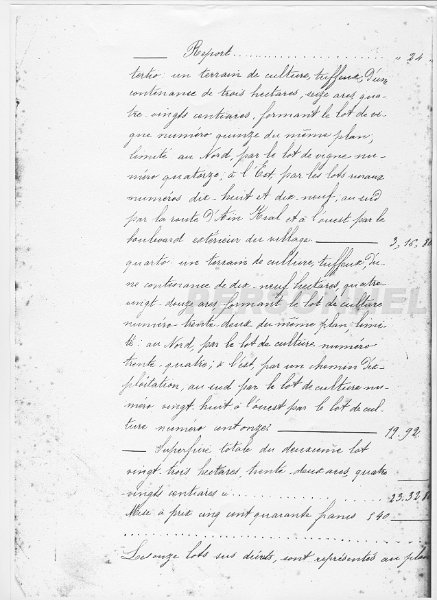 Report .................... " 24 "
tertio un terrain de culture, tuffeux, d'une
contenance de trois hectares, seize ares qua-
tre vingts centiares, formant le lot de vi-
gne numéro quinze du même plan,
limité au Nord, par le lot de vigne nu-
méro quatorze, à l'Est, par les lots ruraux
numéros dix-huit et dix-neuf, au sud
par la route d'Aïn Kial et à l'ouest par le
boulevard extérieur du village ——— 3, 16, 80
quarto un terrain de culture, tuffeux, d'u-
ne contenance de dix-neuf hectares, quatre
vingt-douze ares, formant le lot de culture
numéro trente deux du même plan, limi-
té: au Nord, par le lot de culture numéro
trente-quatre; à l'est, par un chemin d'ex-
ploitation, au sud par le lot de culture nu-
méro vingt-huit à l'ouest par le lot de cul-
ture numéro cent onze ——— 19,92
— Superficie totale du deuxième lot
vingt-trois hectares, trente-deux ares, quatre
vingts centiares ............ 23.32 80
Mise à prix cinq cent quarante francs 540 —
Les onze lots sus décrits, sont représentés au plan